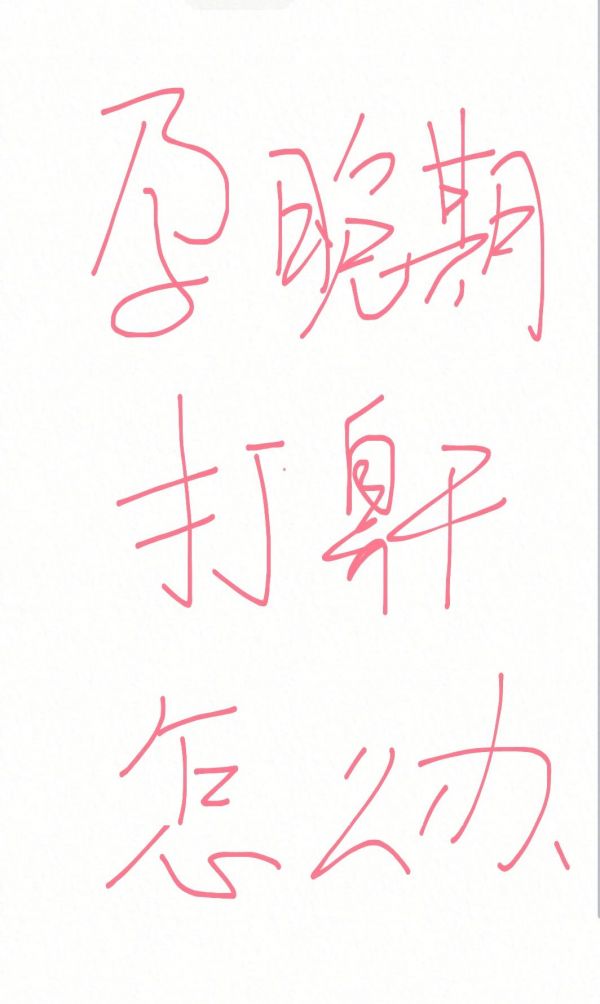 孕晚期
打鼾
怎么办